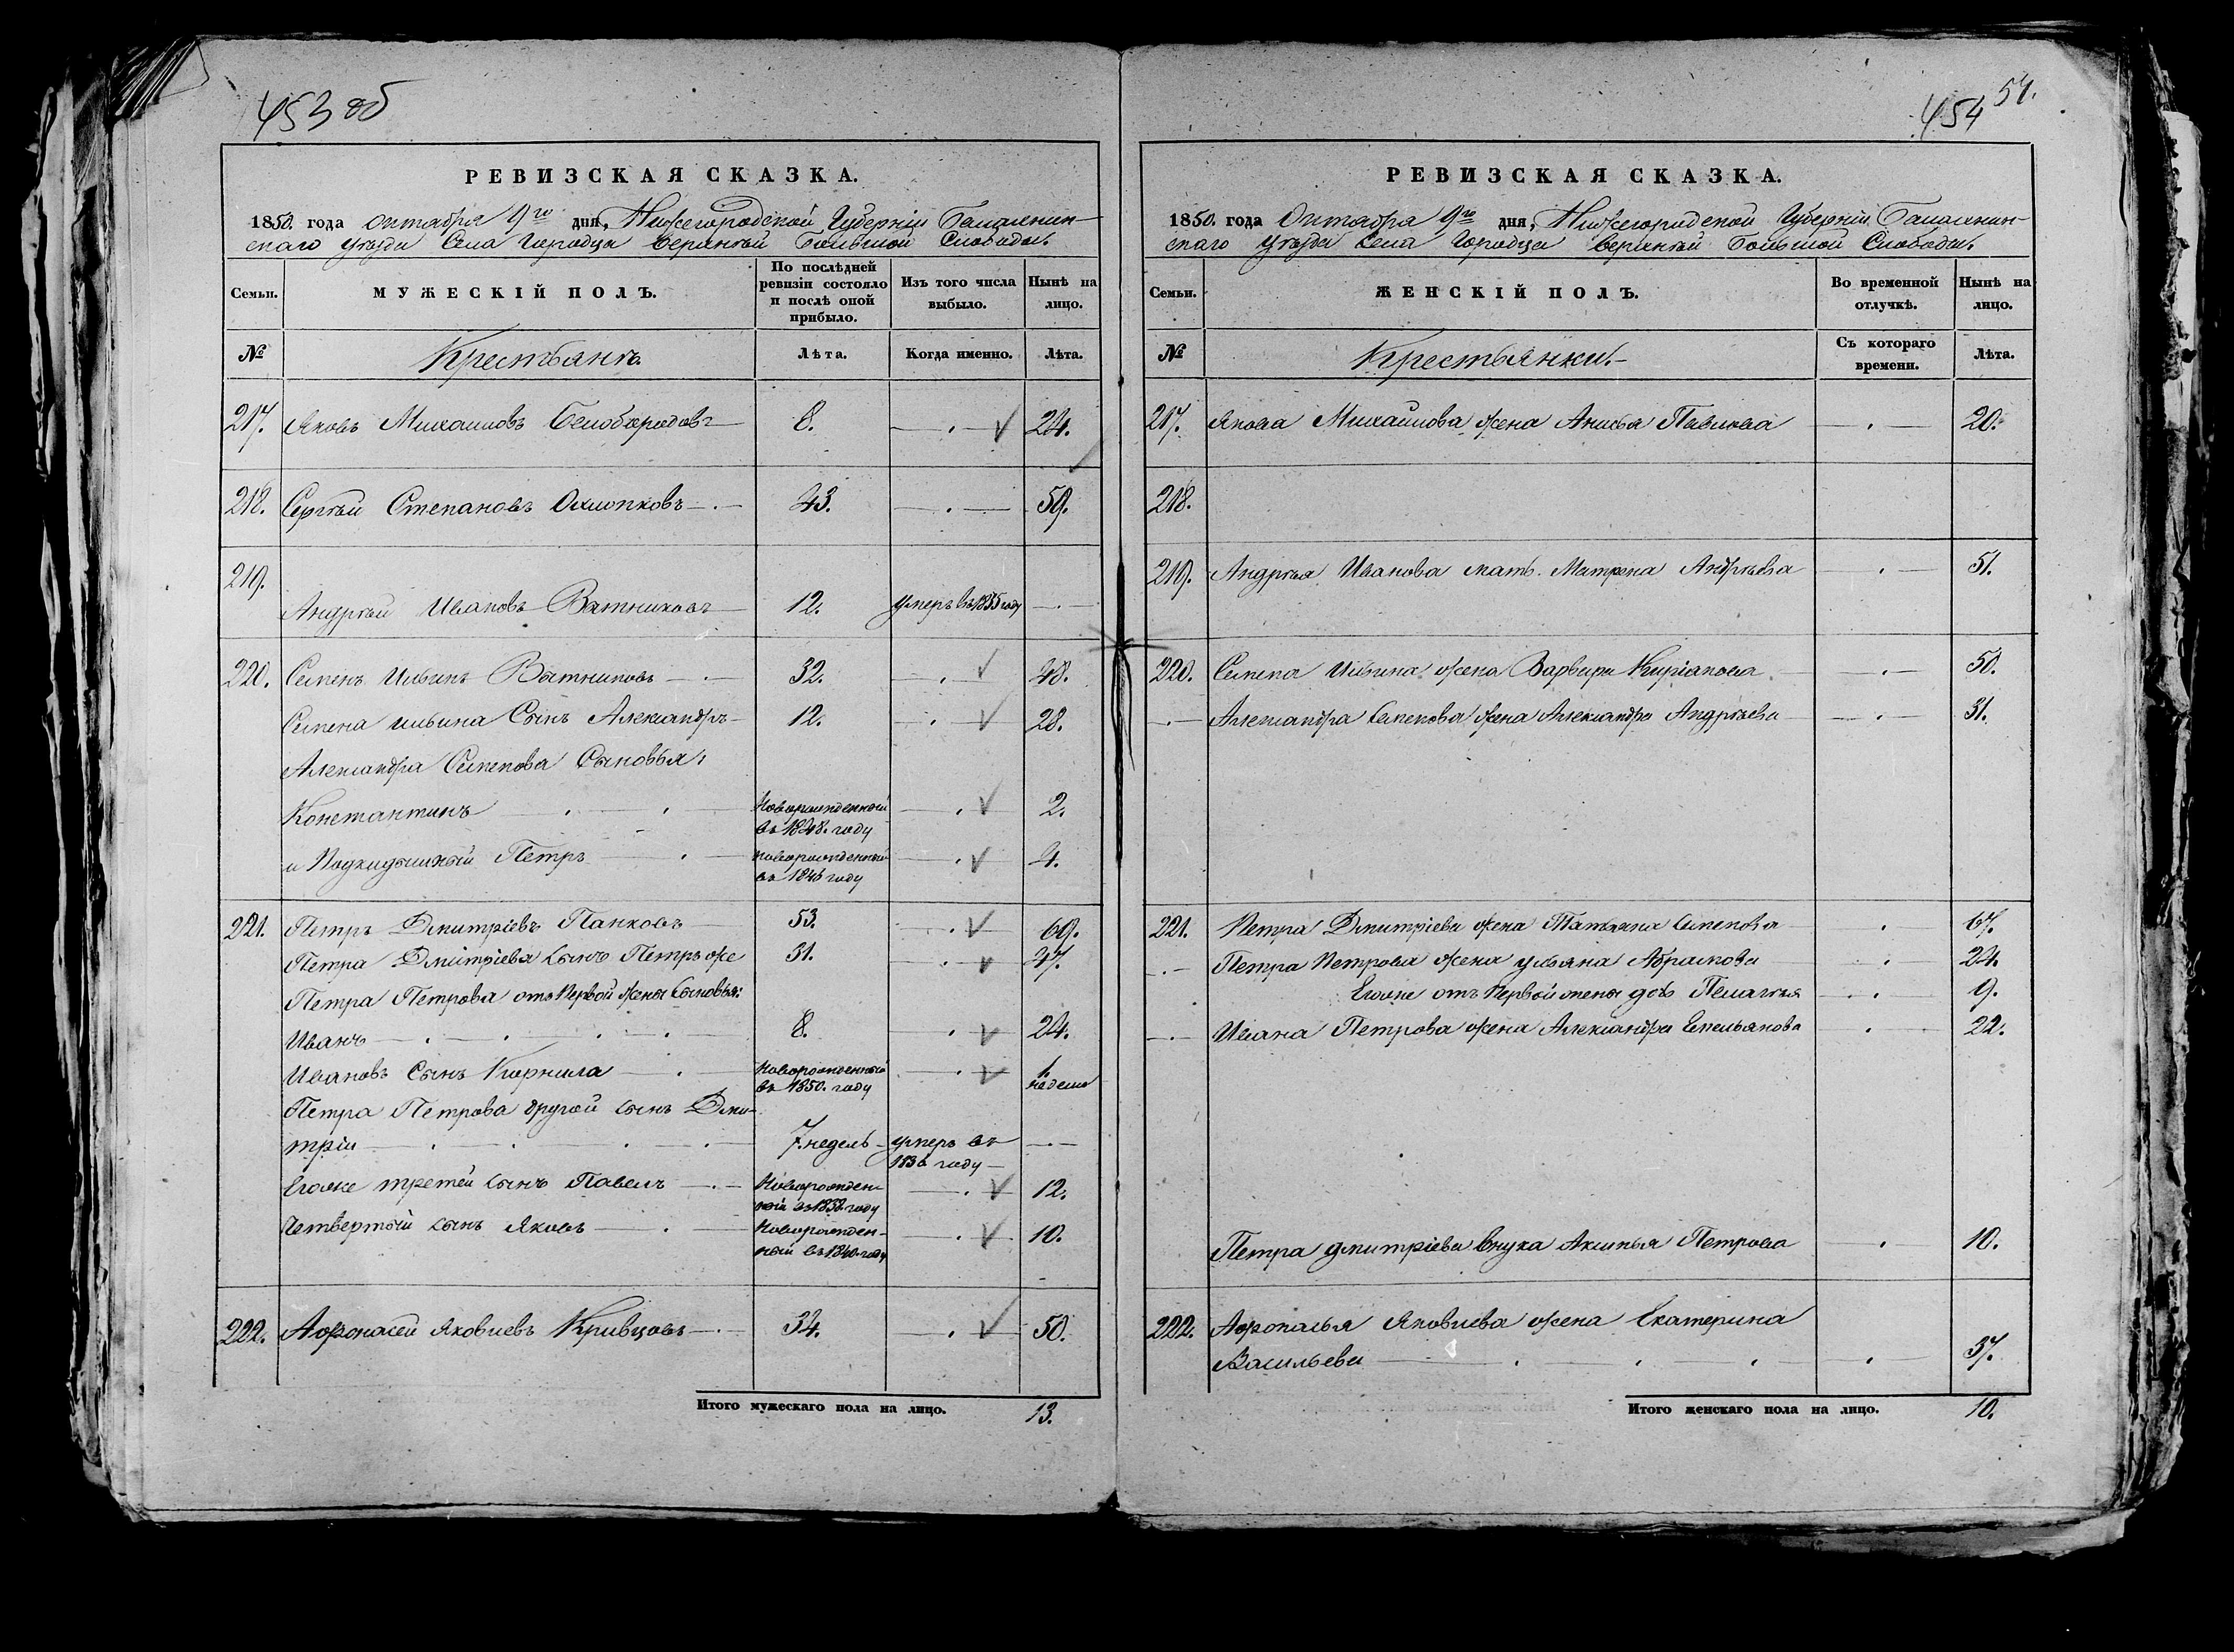 453 об
РЕВИЗСКАЯ СКАЗКА.
1850. года Октября 9го дня, Нижегородской Губерніи Балахнин-
скаго уѣзда Села Городца верхнѣй Большой Слободы.
Семьи.
МУЖЕСКІЙ ПОЛЪ.
По послѣдней ревизіи состояло и послѣ оной прибыло.
Изъ того числа выбыло.
Нынѣ на лицо.
№
Крестьянъ.
Лѣта.
Когда именно.
Лѣта.
217. Яковъ Михаиловъ Белобородовъ 8. 24.
218. Сергѣй Степановъ Охлопковъ 43. 59.
219.
Андрѣй Ивановъ Вятниковъ 12. умеръ въ 1835 году
220. Семенъ Ильинъ Вятниковъ 32. 48.
Семена ильина Сынъ Александръ 12. 28.
Александра Семенова Сыновья:
Константинъ Новорожденный въ 1848. году 2.
и Подкидышный Петръ новорожденный въ 1846 году 4.
221. Петръ Дмитріевъ Панковъ 53. 69.
Петра Дмитріева сынъ Петръ же 31. 47.
Петра Петрова отъ Первой жены Сыновья:
Иванъ 8. 24.
Ивановъ Сынъ Корнила Новорожденный въ 1850. году 1. неделя
Петра Петрова другой сынъ Дми-
трій 7. недель умеръ въ 1836 году
Егоже третей сынъ Павелъ Новорожден-ной въ 1838. году 12.
Четвертый сынъ Яковъ Новорожден-ный въ 1840. году 10.
222. Афонасей Яковлевъ Кривцовъ 34. 50.
Итого мужескаго пола на лицо. 13.
454 54.
РЕВИЗСКАЯ СКАЗКА.
1850. года Октября 9го дня, Нижегородской Губерніи Балахнин-
скаго уѣзда села Городца верхнѣй Большой Слободы.
Семьи.
ЖЕНСКІЙ ПОЛЪ.
Во временной отлучкѣ.
Нынѣ на лицо.
№
Крестьянки.
Съ котораго времени.
Лѣта.
217. Якова Михаилова жена Анисья Павлова 20.
218.
219. Андрѣя Иванова мать Матрена Андрѣева 51.
220. Семена Ильина жена Варвара Киріанова 50.
Александра Семенова жена Александра Андрѣева 31.
221. Петра Дмитріева жена Татьяна Семенова 67.
Петра Петрова жена ульяна Абрамова 24.
Егоже отъ Первой жены дочь Пелагѣя 9.
Ивана Петрова жена Александра Емельянова 22.
Петра дмитріева внука Акилина Петрова 10.
222. Афонасья Яковлева жена Екатерина
Васильева 37.
Итого женскаго пола на лицо. 10.